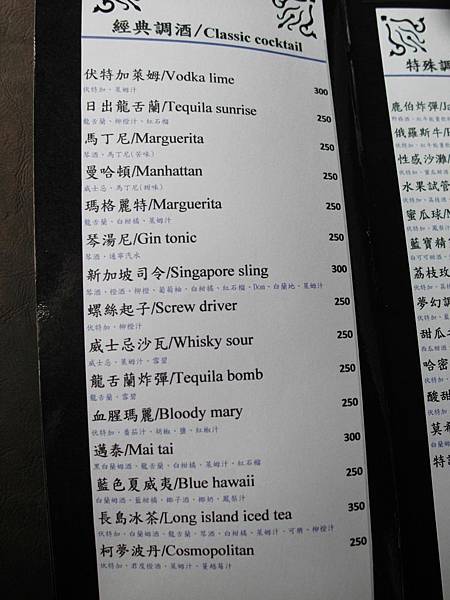 經典調酒/Classic cocktail
伏特加萊姆/Vodka lime 300
伏特加、萊姆汁
日出龍舌蘭/Tequila sunrise 250
龍舌蘭、柳橙汁、紅石榴
馬丁尼/Marguerita 250
琴酒、馬丁尼(苦味)
曼哈頓/Manhattan 250
威士忌、馬丁尼(甜味)
瑪格麗特/Marguerita 250
龍舌蘭、白柑橘、萊姆汁
琴湯尼/Gin tonic 250
琴酒、通寧汽水
新加坡司令/Singapore sling 300
琴酒、橙酒、柳橙、葡萄柚、白柑橘、紅石榴、Dom、白蘭地、萊姆汁
螺絲起子/Screw driver 250
伏特加、柳橙汁
威士忌沙瓦/Whisky sour 250
威士忌、萊姆汁、雪碧
龍舌蘭炸彈/Tequila bomb 250
龍舌蘭、雪碧
血腥瑪麗/Bloody mary 250
伏特加、番茄汁、胡椒、鹽、紅椒汁
邁泰/Mai tai 300
黑白蘭姆酒、龍舌蘭、白柑橘、萊姆汁、紅石榴
藍色夏威夷/Blue hawaii 250
白蘭姆酒、藍柑橘、椰子酒、椰奶、鳳梨汁
長島冰茶/Long island iced tea 350
伏特加、白蘭姆酒、龍舌蘭、琴酒、白柑橘、萊姆汁、可樂、柳橙汁
柯夢波丹/Cosmopolitan 250
伏特加、君度橙酒、萊姆汁、蔓越莓汁
特殊調
鹿伯炸彈/Ja
俄羅斯牛/
性感沙灘/
水果試管
蜜瓜球/M
藍寶精
荔枝玫
夢幻調
甜瓜
哈密
酸甜
莫希
特調